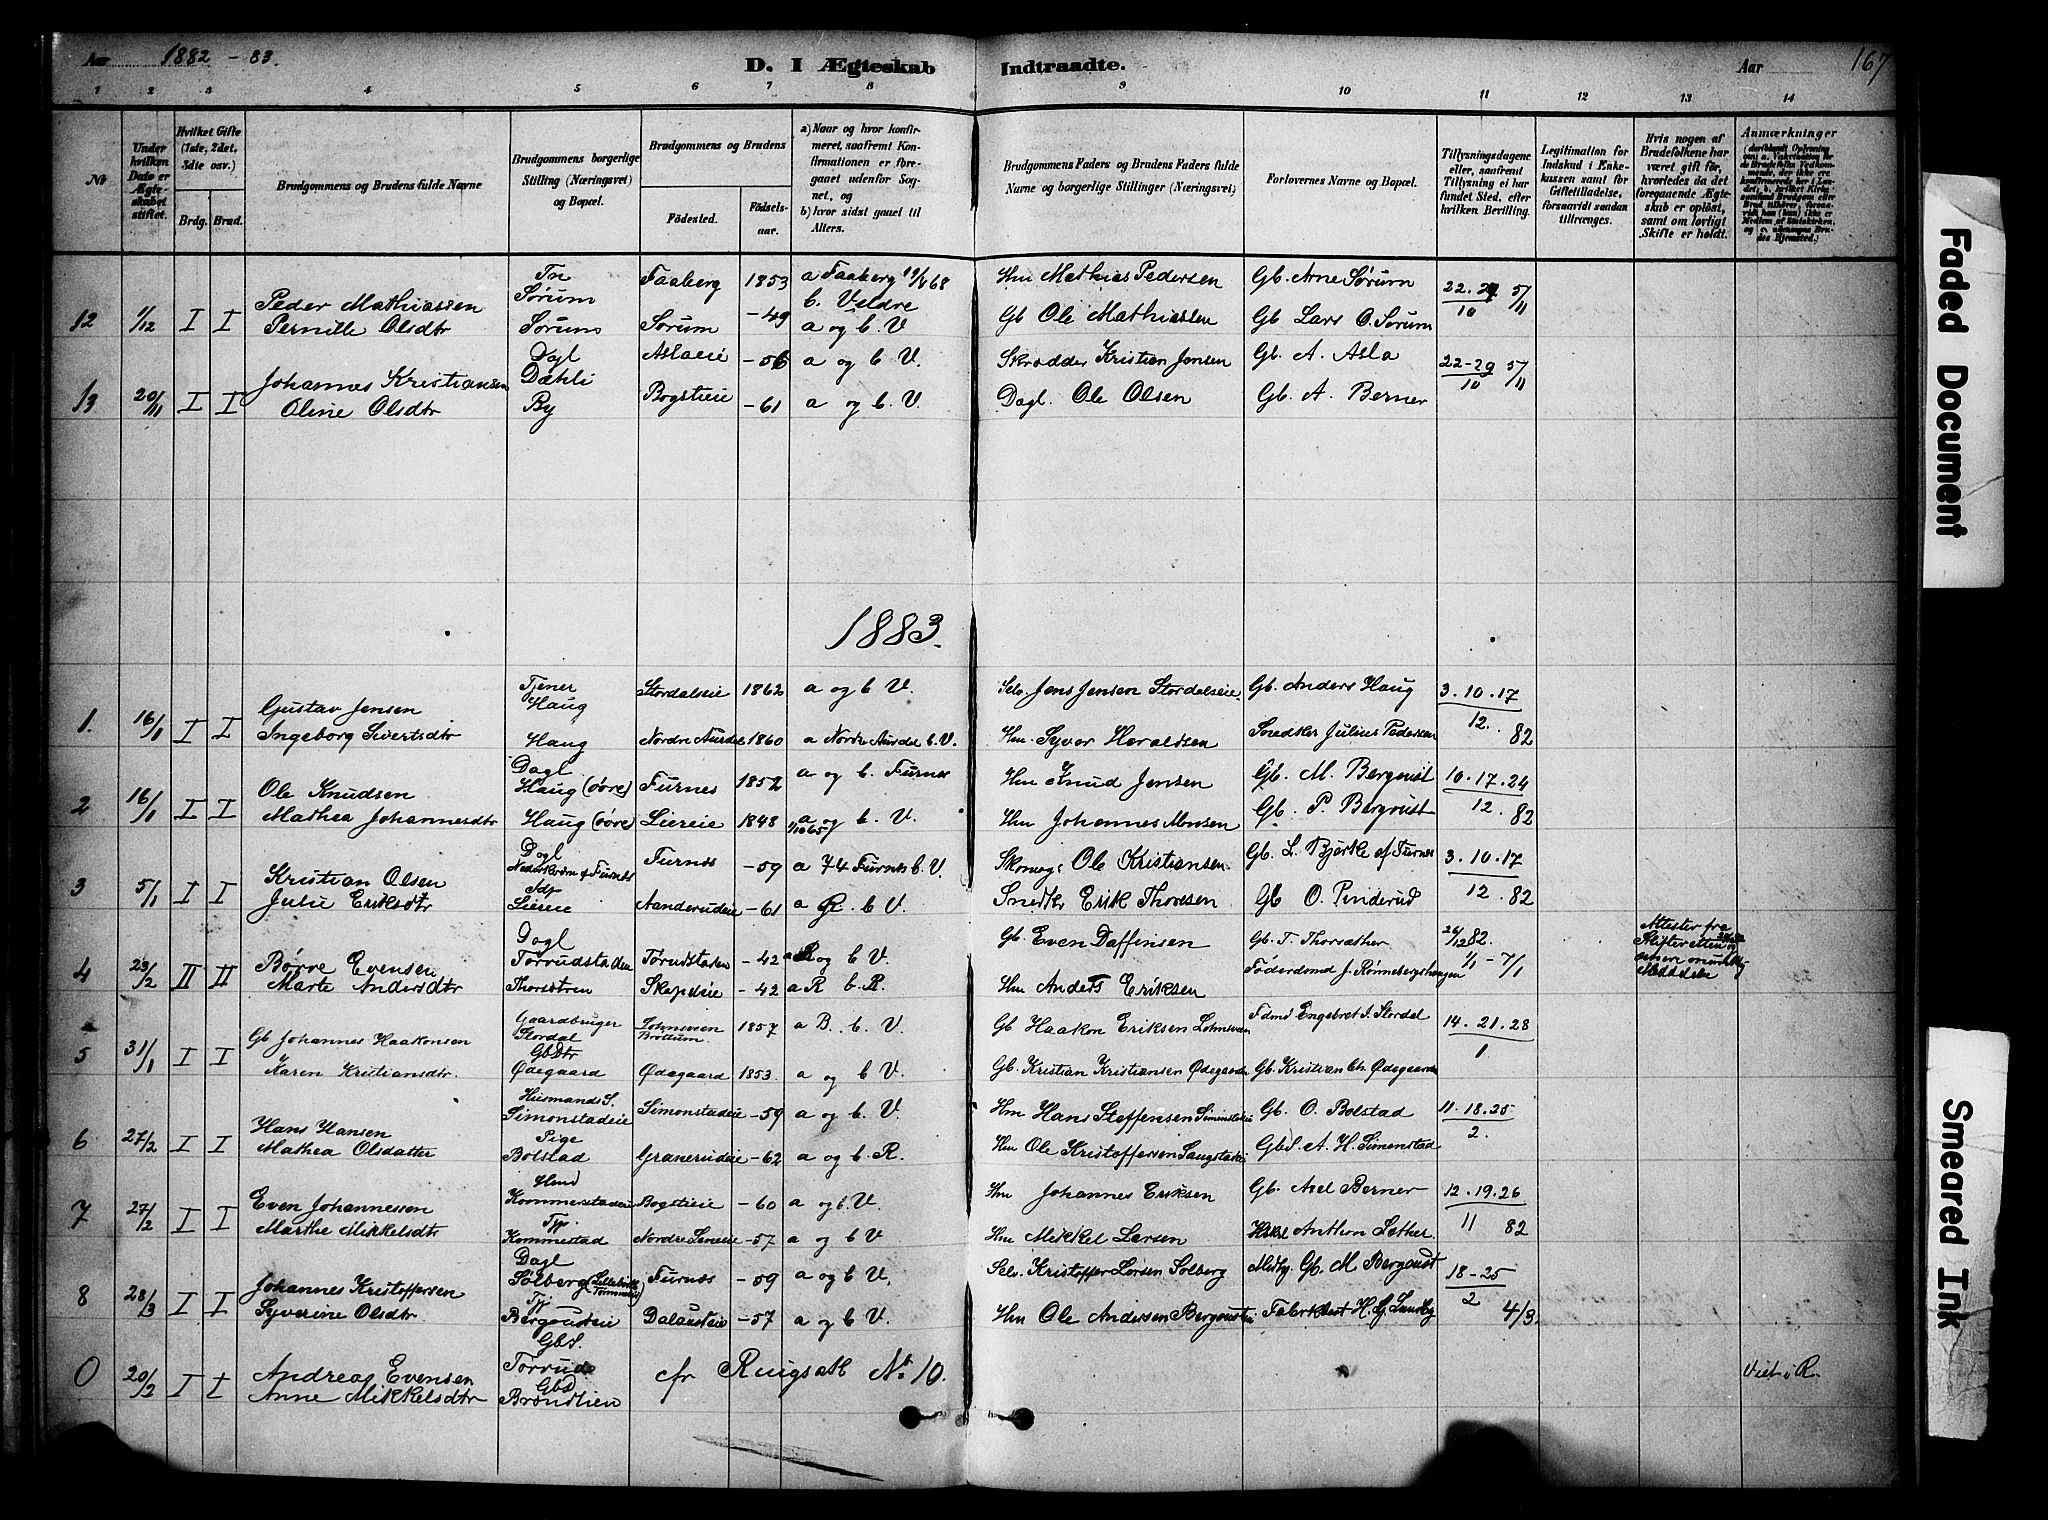 Aar 1882 - 83.
D. I Ægteskab Indtraadte.
Aar 167
1 2 3 4 5 6 7 8 9 10 11 12 13 14
№
Under hvilken Dato er Ægteskabet stiftet.
Hvilket Gifte (1ste, 2det, 3die osv.)
Brdg. Brud.
Brudgommens og Brudens fulde Navne
Brudgommens borgerlige Stilling (Næringsvei) og Bopæl.
Brudgommens og Brudens
Födested. Födselsaar.
a) Naar og hvor konfirmeret, saafremt Konfirmationen er foregaaet udenfor Sognet, og
b) hvor sidst gaaet til Alters.
Brudgommens Faders og Brudens Faders fulde Navne og borgerlige Stillinger (Næringsvei)
Forlovernes Navne og Bopæl.
Tillysningsdagene eller, saafremt Tillysning ei har fundet Sted, efter hvilken Bevilling.
Legitimation for Indskud i Enkekassen samt for Giftetilladelse, forsaavidt saadan tiltrænges.
Hvis nogen af Brudefolkene har været gift før, hvorledes da det foregaaende Ægteskab er opløst, samt om lovligt Skifte er holdt.
Anmærkninger
12 1/12 I I Peder Mathiassen Tn Sørum Faaberg 1853 a Faaberg 19/4 68 b. Veldre Hm Mathias Pedersen Gb. Arne Sørum 22. 29 5/11
Pernille Olsdtr Sørum Sørum -49 a og b. V Gb Ole Mathiassen Gb Lars O. Sørum 10
13 20/11 I I Johannes Kristiansen Dgl Dæhli Aslaeie -56 a og b V. Skrædder Kristian Jensen Gb. A. Asla 22-29 5/11
Oline Olsdtr By Bogstieie -61 a og b. V. Dagl. Ole Olsen Gb. A. Berner 10
1883.
1. 16/1 I I Gustav Jensen Tjener Haug Stordalseie 1862 a og b V. Selv. Jens Jensen Stordalseie Gb. Anders Haug 3. 10. 17
Ingeborg Sivertsdtr Haug Nordre Aurdal 1860 a Nordre Aurdal b. V. Hm. Syver Haraldsen Snedker Julius Pedersen 12. 82
2 16/1 I I Ole Knudsen Dagl Haug (øvre) Furnes 1852 a og b. Furnes Hm Knud Jensen Gb. M. Bergquist 10. 17. 24
Mathea Johannesdtr Haug (øvre) Liereie 1848 1/10 65 a og b. V. Hm Johannes Monsen Gb. P. Bergqvist 12. 82
3 5/1 I I Kristian Olsen Dagl Furnes -59 a 74 Furnes b. V. Skomag. Ole Kristiansen Gb. L. Bjerke af Furnes 3. 10. 17
Julie Eriksdtr Liereie Aanderudeie -61 a R. b V. Snedkr Erik Thoresen Gb O. Pinderud 12. 82
4 23/2 II II Børre Evensen Dagl Torrudstaden Torudstaden -42 a R og b V. Gb. Even Daffinsen Gb. T. Thorsæther 26/12 82.
Marte Andersdtr Skapdeie -42 a R b. R. Hm Anders Eriksen Föderdsmd J. Rønnebergshaugen 1/1 - 7/1
Attester fra Skifteretten
5 31/1 I I Gb Johannes Haakonsen Gaardbruger Stordal Lohnsveen Brøttum 1857 a B. b. V. Gb Haakon Eriksen Lohnsveen Fdmd Engebret J. Stordal 14. 21. 28
Karen Kristiansdtr. Gbdtr Ødegaard Ødegaard 1853. a og b V. Gb. Kristian Kristiansen Ødegaarden Gb. Kristian Ch. Ødegaarden 1.
6 27/2 I I Hans Hansen Husmands S. Simonstadeie Simonstadeie -59 a og b. V. Hm Hans Steffensen Simenstadeie Gb. O. Bolstad 11. 18. 25
Mathea Olsdatter Pige Bolstad Granerudeie -62 a og b. R. Hm Ole Kristoffersen Gbd. A. H. Simenstad 2.
7 27/2 I I Even Johannessen Kommerstadeie Bogstieie -60 a og b. V. Hm Johannes Eriksen Gb. Axel Berner 12. 19. 26
Marthe Mikkelsdtr Tjp. Kommestad Nordre Lieneie -57 a og b V. Hm Mikkel Larsen Anthon Sæther 11 82
8 28/3 I I Johannes Kristoffersen Dagl Solberg Furnes -59 a og b V. Selv. Kristoffer Larsen Solberg Gb. M Bergqust 18-25
Syverine Olsdtr Tjp Bergqusteie Dalausteie -57 a og b V. Hm Ole Andersen Bergqusteie H. G. Lundby 2 4/3
0 20/2 I I Andreas Evensen GbS. Torrud cfr Ringsak № 10. Viet i R.
Anne Mikkelsdtr Gbd Brøndlien
Faded Document
Smeared Ink